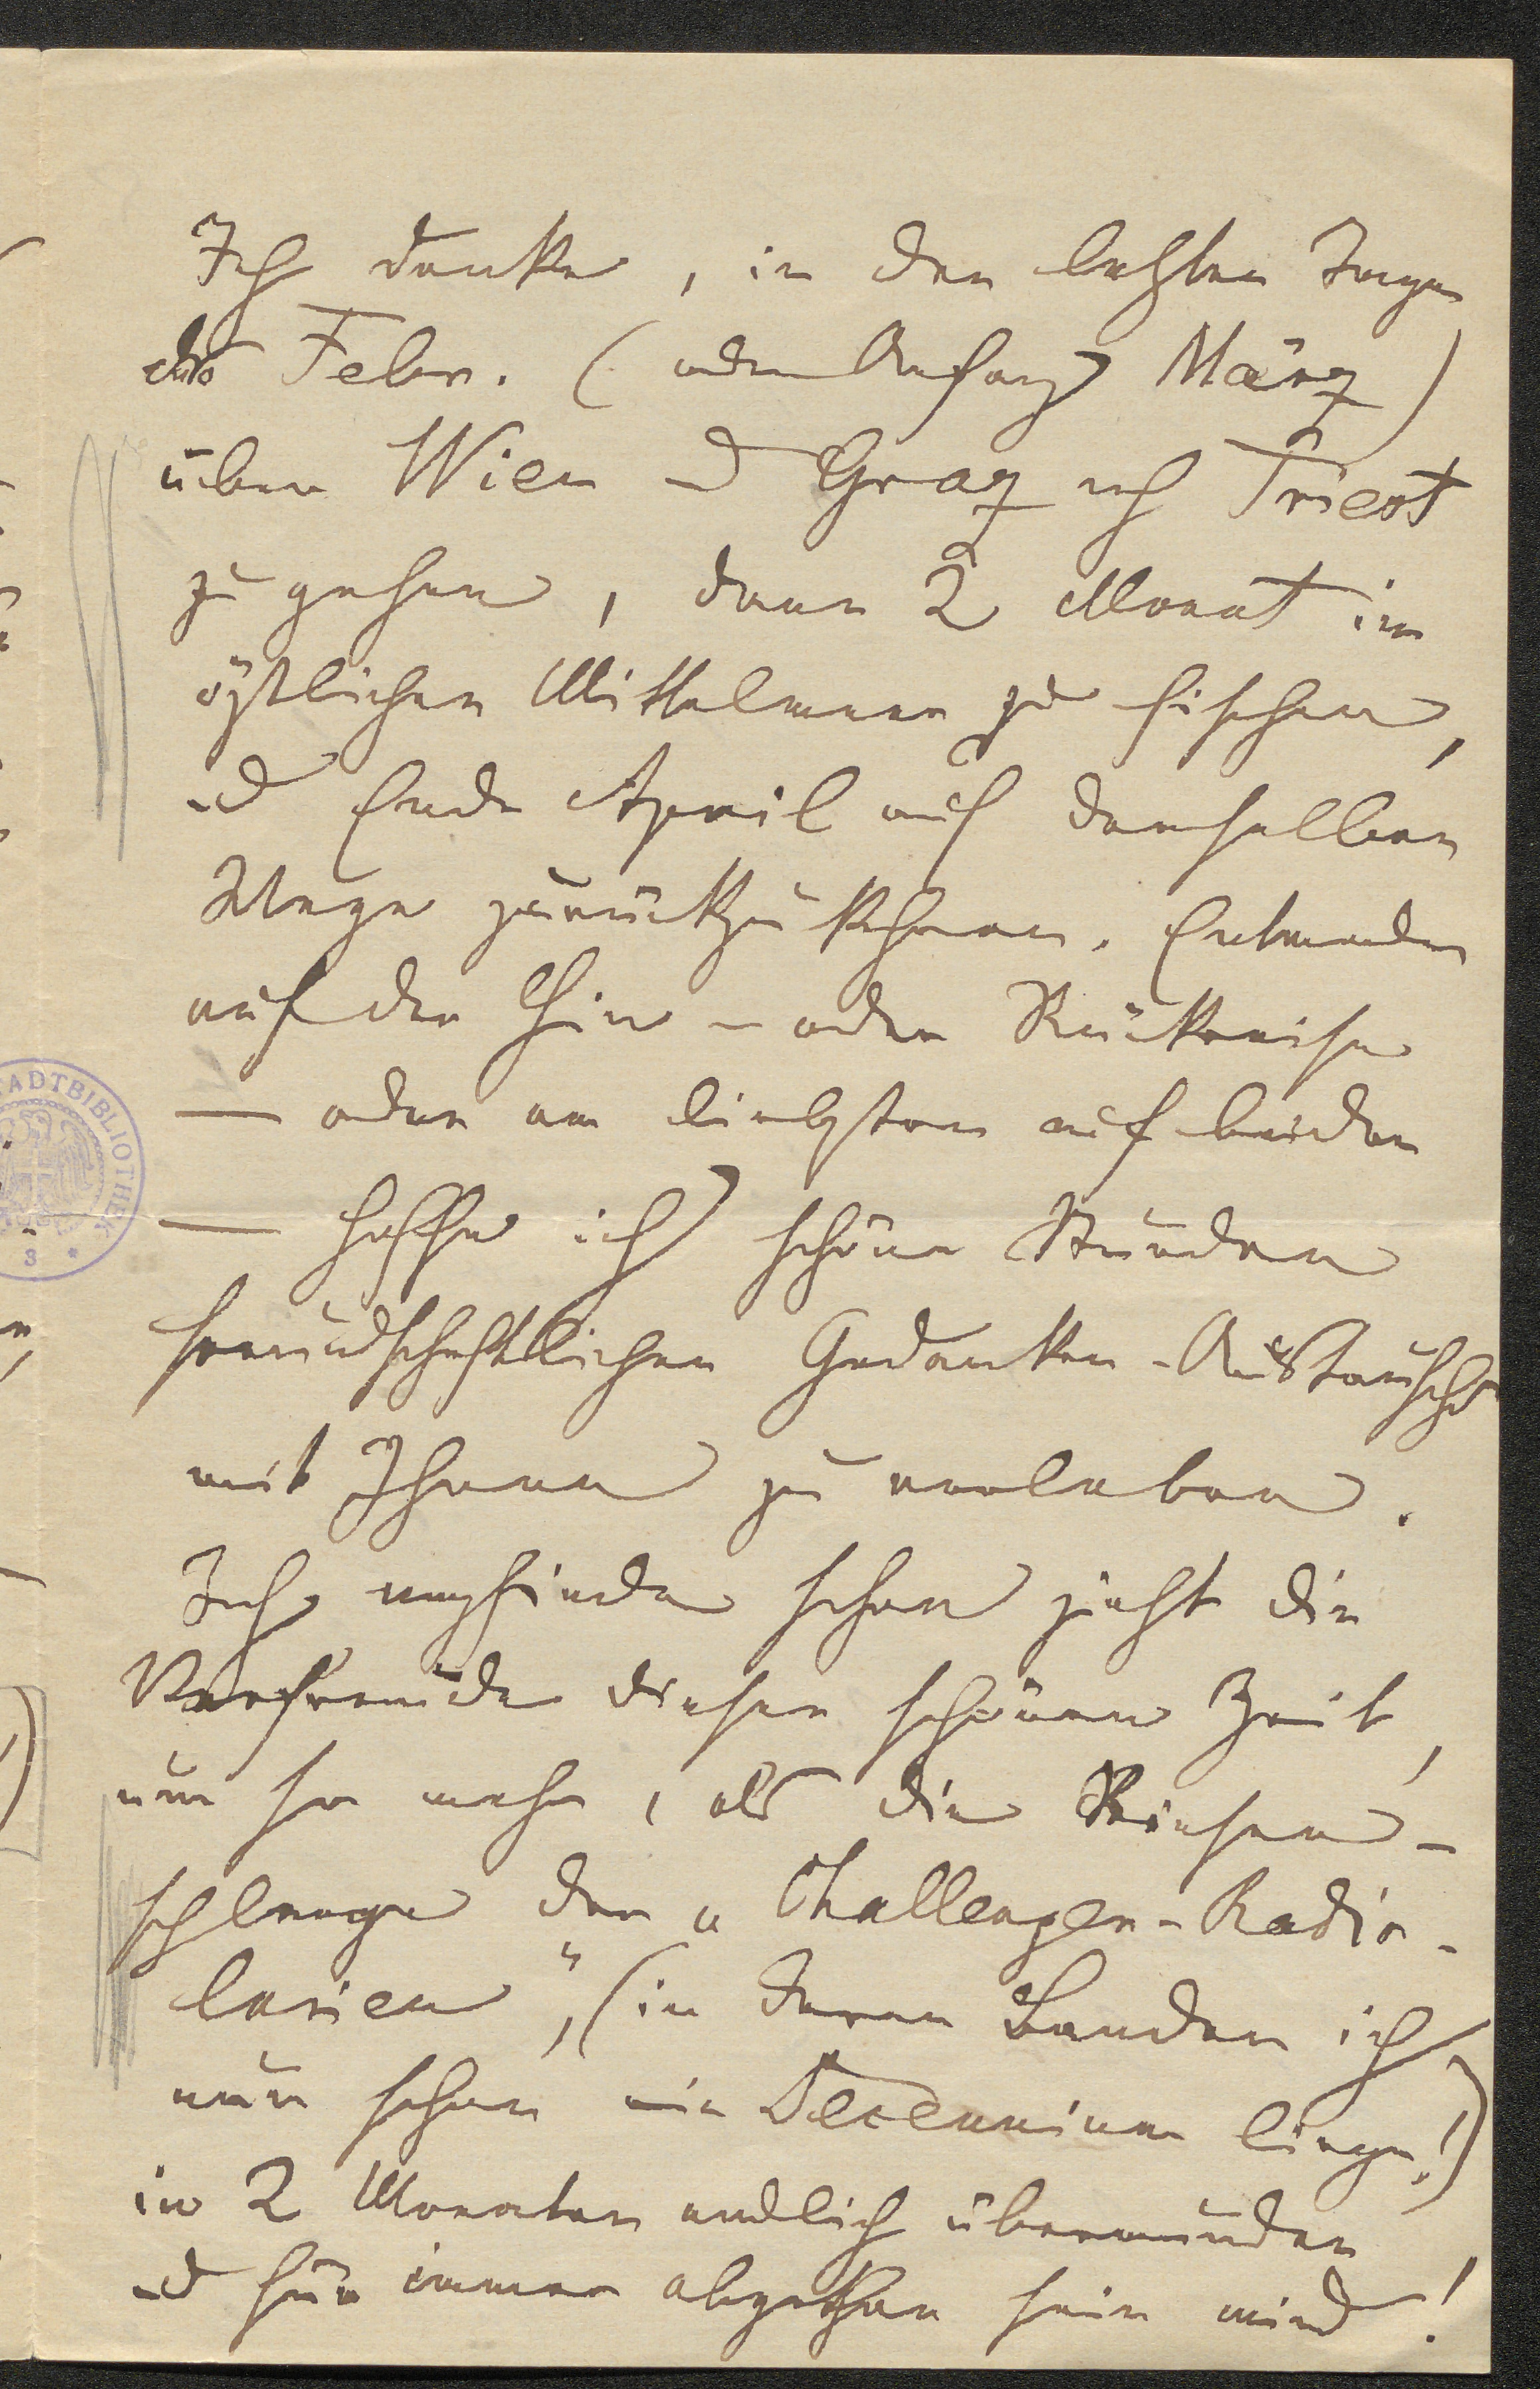 Ich denke, in den letzten Tagen
des Febr. (oder Anfang März)
über Wien u Graz nach Triest
zu gehen, dann 2 Monat im
östlichen Mittelmeer zu fischen,
u Ende April auf demselben
Wege zurückzukehren. Entweder
auf der Hin- oder Rückreise
— oder am liebsten auf beiden
— hoffe ich schöne Stunden
freundschaftlichen Gedanken-Austauschs
mit Ihnen zu verleben.
Ich empfinde schon jetzt die
Vorfreude dieser schönen Zeit,
um so mehr, als die Riesen-
schlange der „Challenger-Radio-
larien", (in deren Banden ich
nun schon ein Decennium liege!)
in 2 Monaten endlich überwunden
u für immer abgethan sein wird!
STADTBIBLIOTHEK